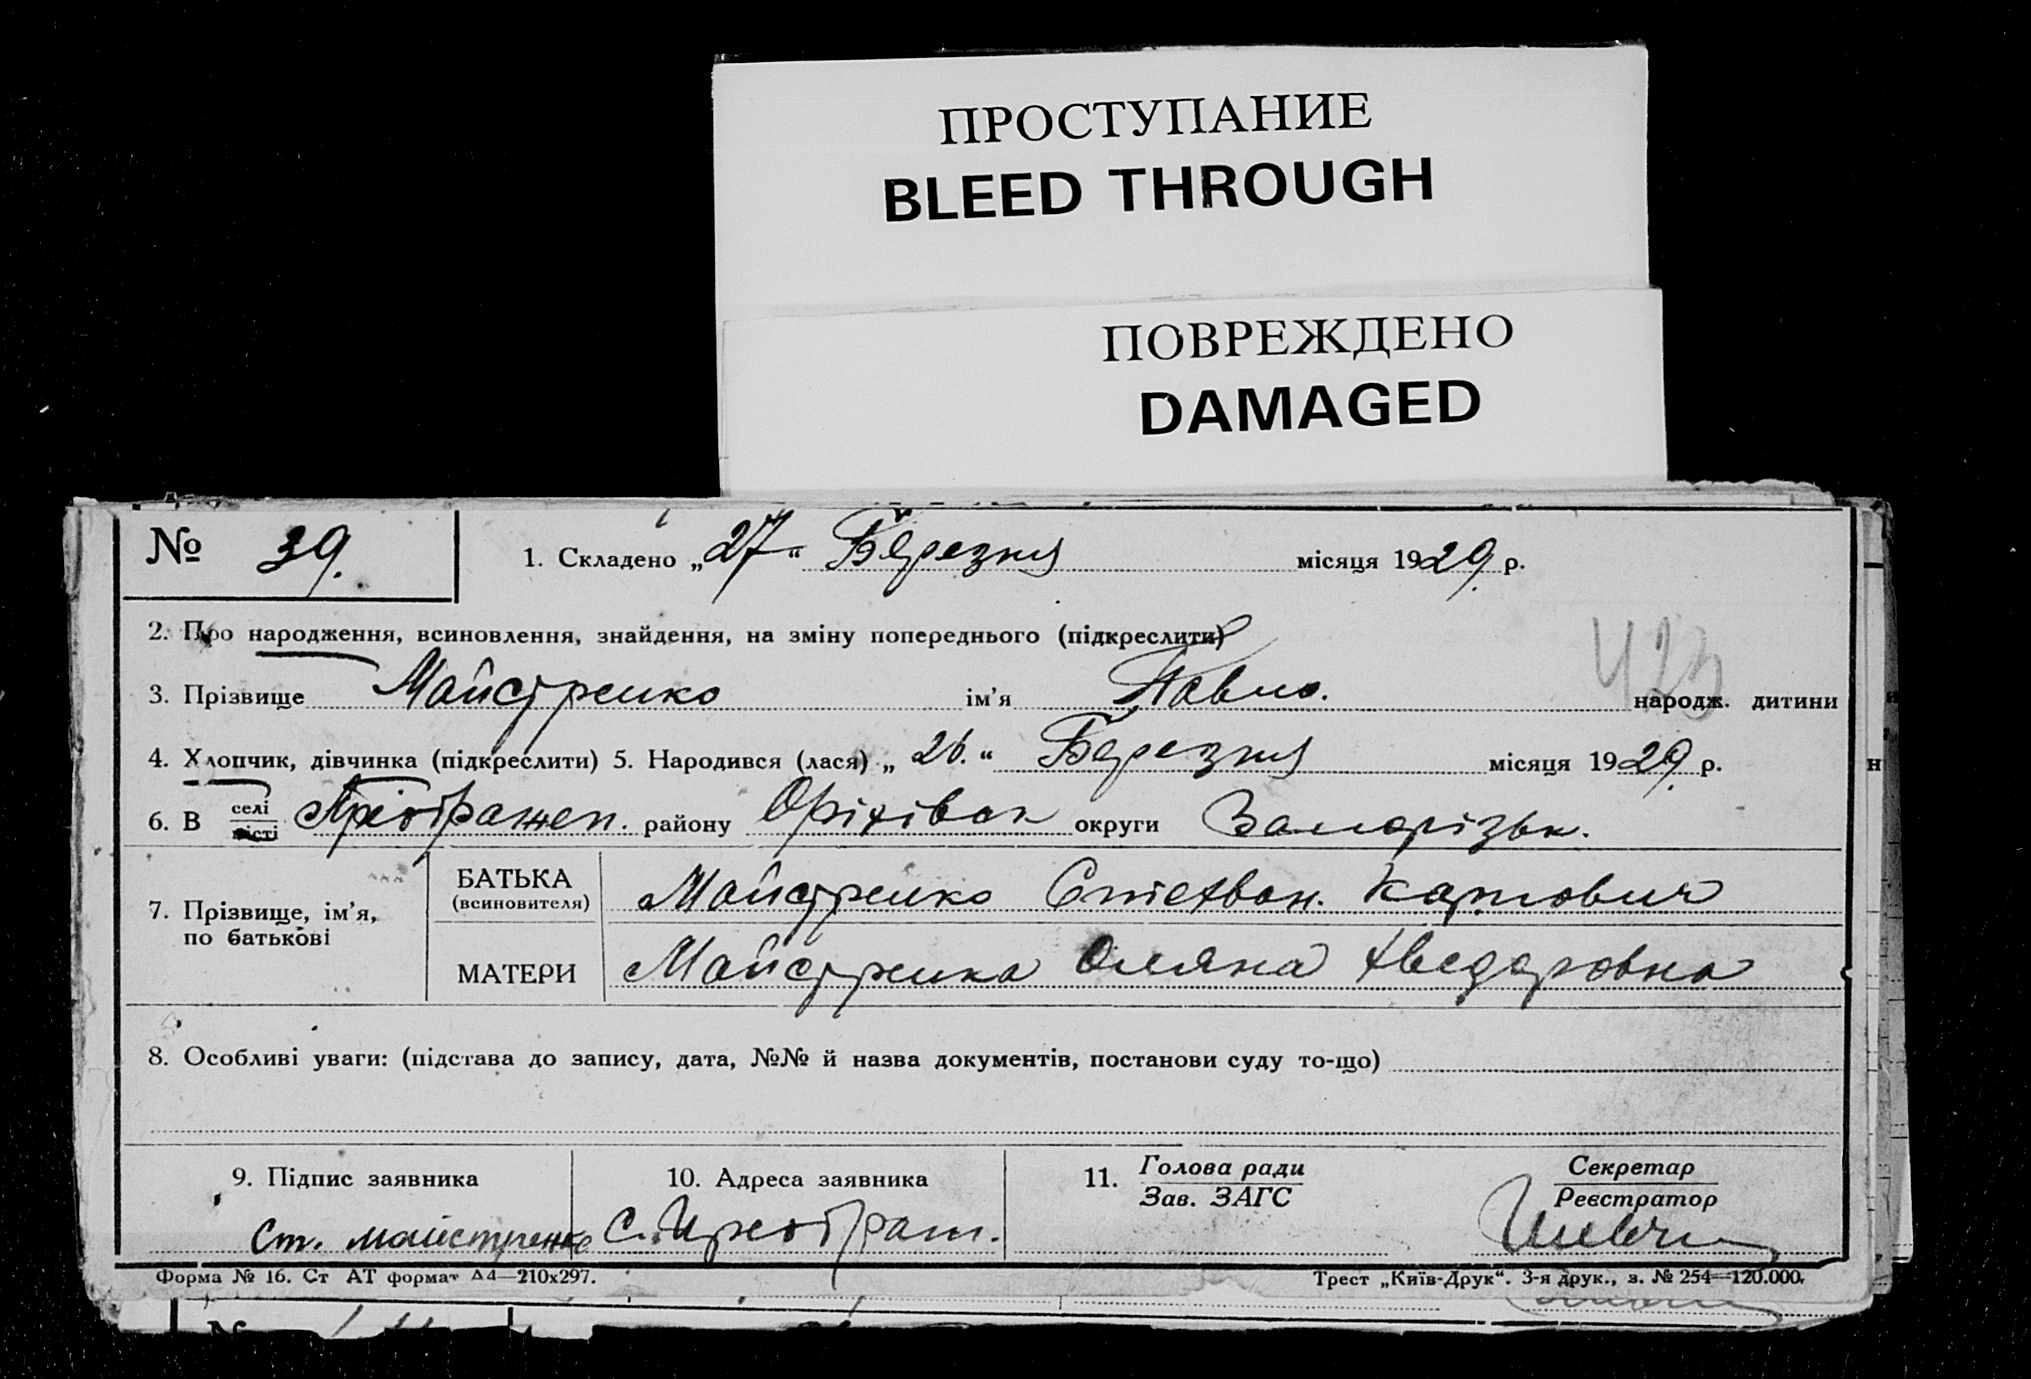 ПРОСТУПАНИЕ
BLEED THROUGH
ПОВРЕЖДЕНО
DAMAGED
№ 39. 1. Складено „27“ Березня місяця 1929 р.
2. Про народження, всиновлення, знайдення, на зміну попереднього (підкреслити)
423
3. Прізвище Майстренко ім’я Павло. народж. дитини
4. Хлопчик, дівчинка (підкреслити) 5. Народився (лася) „26.“ Березня місяця 1929 р.
6. В селі/місті Преображен. району Оріхівськ округи Запорізьк.
7. Прізвище, ім’я, по батькові
БАТЬКА (всиновителя) Майстренко Стехван. Карпович
МАТЕРИ Майстренка Оляна Хведоровна
8. Особливі уваги: (підстава до запису, дата, №№ й назва документів, постанови суду то-що)
9. Підпис заявника 10. Адреса заявника 11. Голова ради/Зав. ЗАГС Секретар/Реєстратор
Ст. майстренко с. Преображ.
Форма № 16. Ст АТ формат А4—210х297. Трест „Київ-Друк“. 3-я друк., з. № 254—120.000.